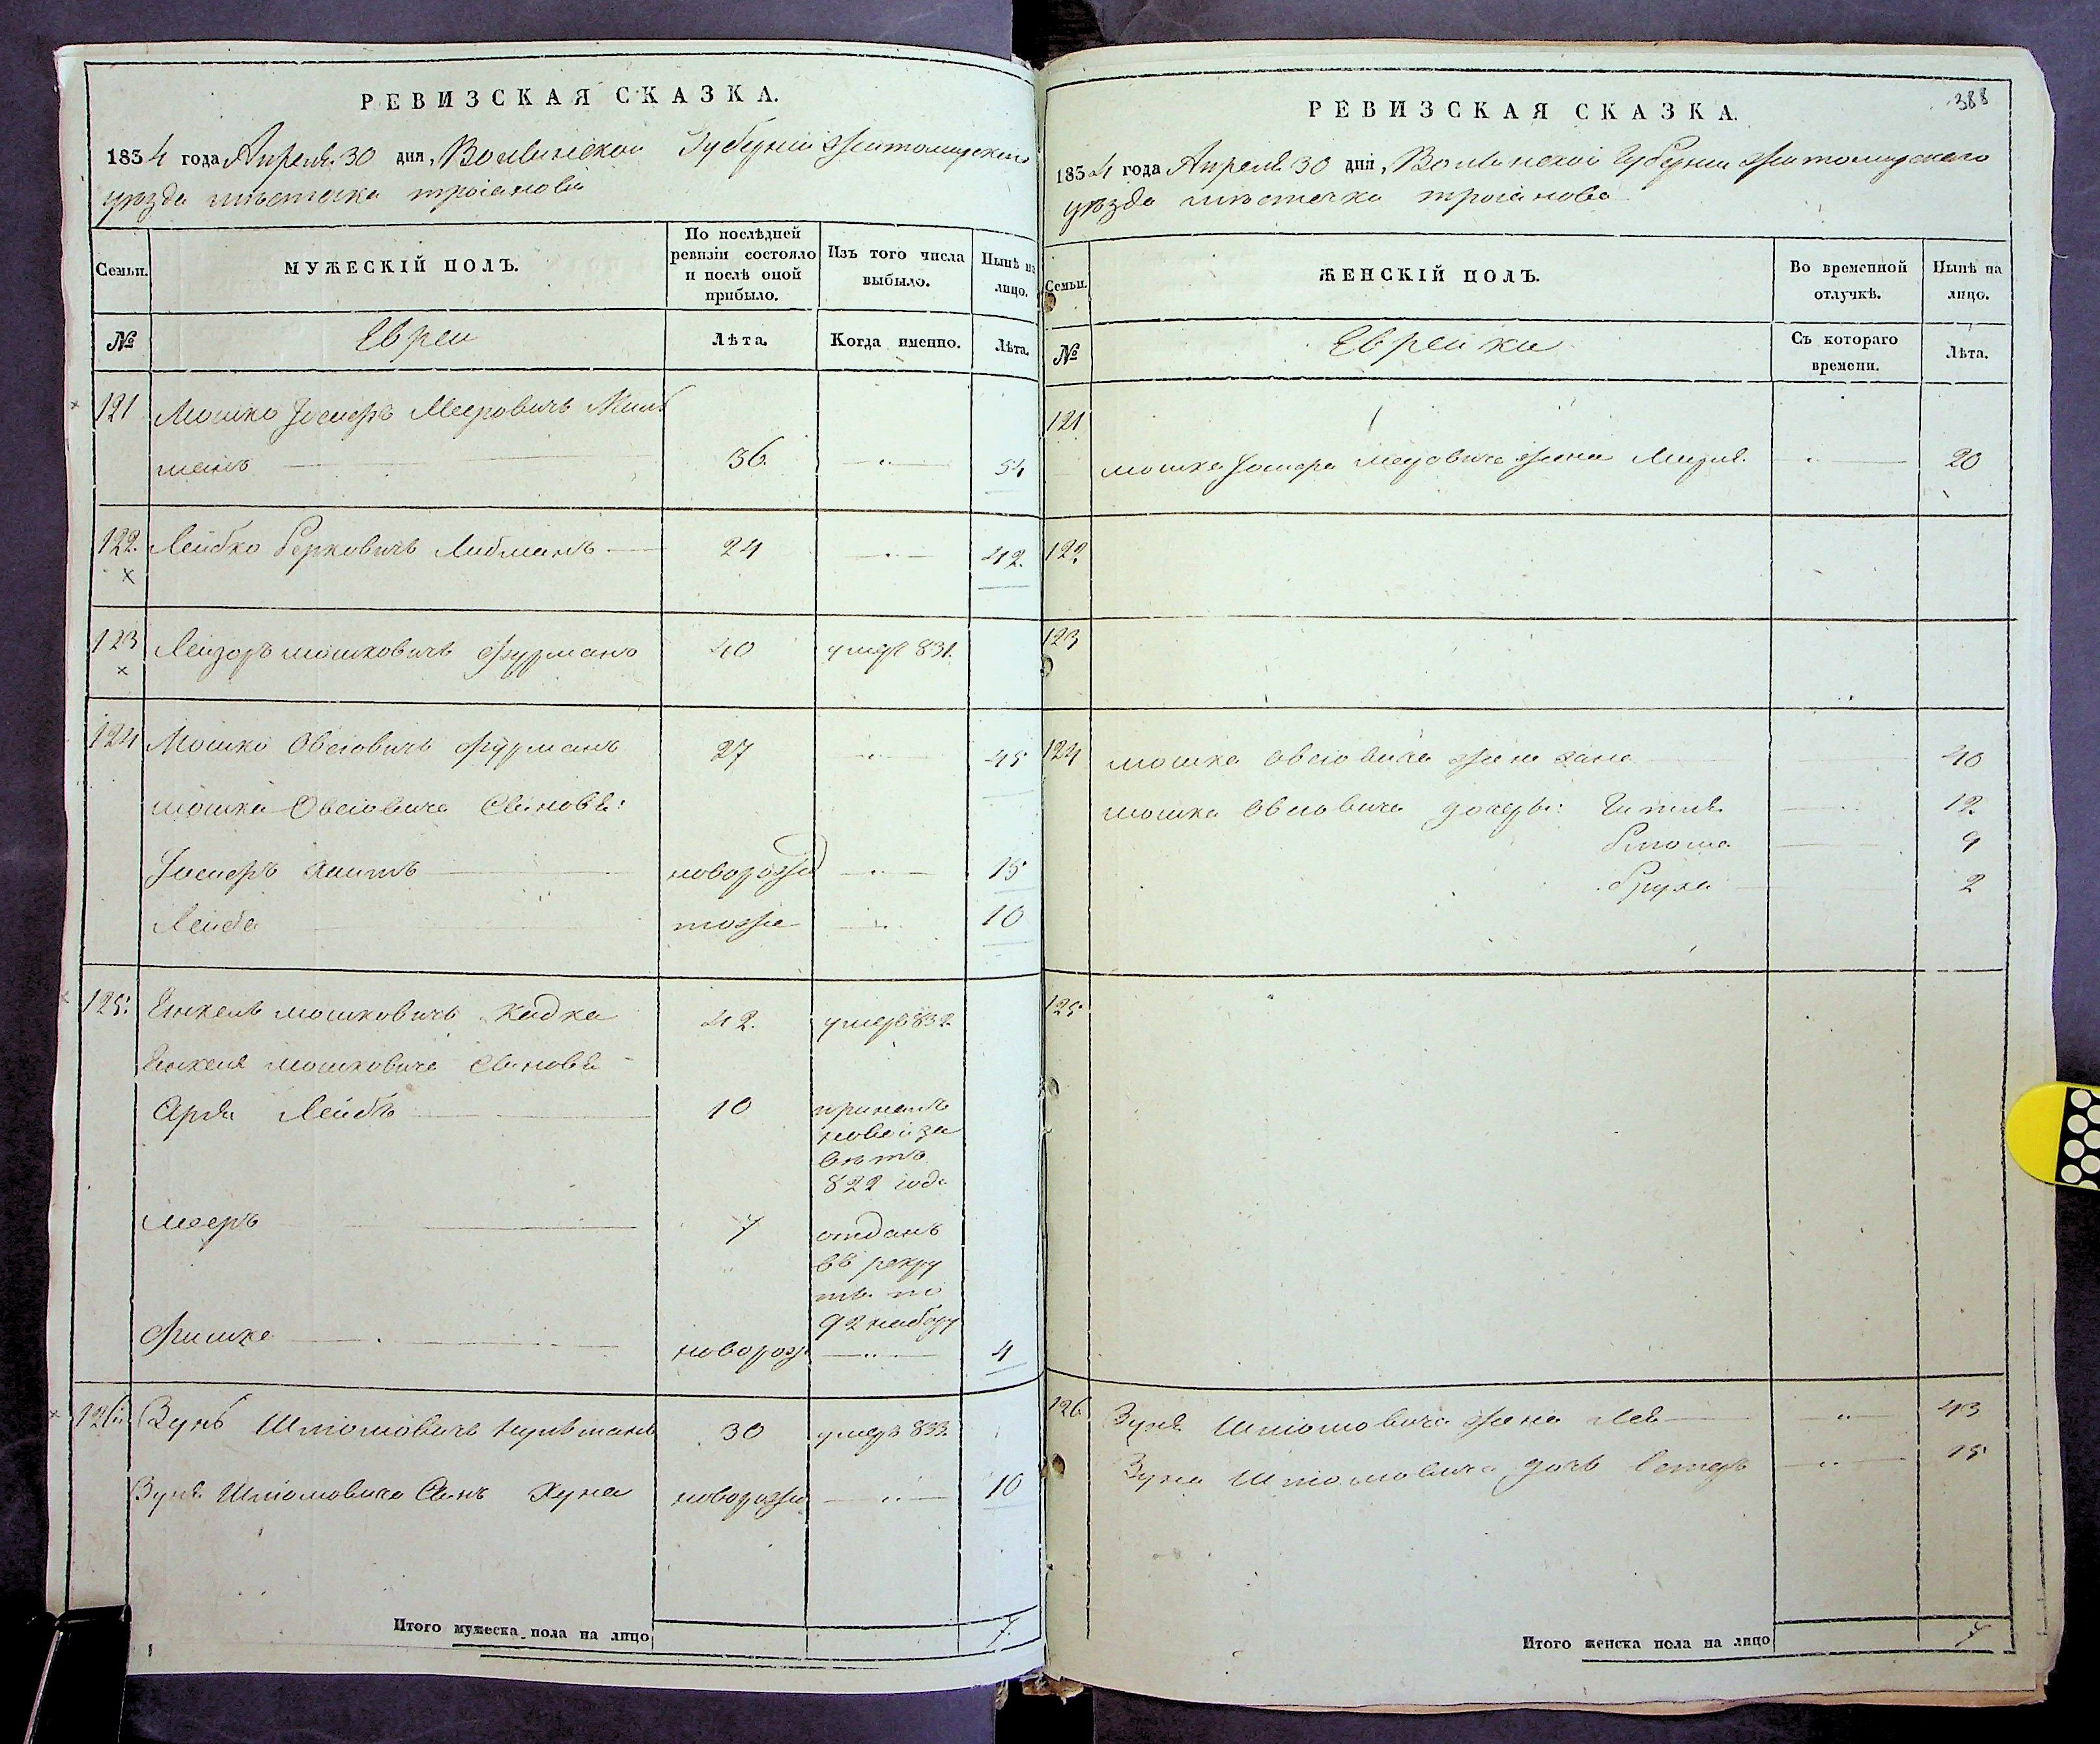 РЕВИЗСКАЯ СКАЗКА.
1834 года Апреля 30 дня, Волынской Губернии Житомирского
уезда местечка Троianова
Семьи.
МУЖЕСКІЙ ПОЛЪ.
По послѣдней ревизіи состояло и послѣ оной прибыло.
Изъ того числа выбыло.
Нынѣ на лицо.
№
Евреи
Лѣта.
Когда именно.
Лѣта.
121 Мошко Иосифъ Мееровичъ
манъ 36 54
122. Лейбко Берковичъ Либманъ 24 42.
123 Лейзоръ Мошковичъ Фурманъ 40 умеръ 831.
124 Мошко Овсіовичъ Фурманъ 27 45
Мошка Овсіовича сыновья:
Иосифъ Хаимъ новорожд 15
Лейба тоже 10
125. Янкель Мошковичъ Кадка 42. умеръ 832
Янкеля Мошковича сыновья
Арья Лейбъ 10 принялъ
новой за
вѣтъ
822 года
Мееръ 7 отданъ
въ рекру
ты по
92 набору
Фишка новорож 4
126. Зунь Шліомовичъ 30 умеръ 833.
Зуня Шліомовича сынъ Хуна новорожд 10
Итого мужеска пола на лицо 7.
388
РЕВИЗСКАЯ СКАЗКА.
1834 года Апреля 30 дня, Волынской Губернии Житомирского
уезда местечка Троianова
Семьи.
ЖЕНСКІЙ ПОЛЪ.
Во временной отлучкѣ.
Нынѣ на лицо.
№
Еврейки
Съ котораго времени.
Лѣта.
121
Мошка Иосифа Мееровича жена 20
122
123
124 Мошка Овсіовича жена Хана 40
Мошка Овсіовича дочери: Гитля 12
9
Бруха 2
125
126 Зуня Шліомовича жена Лея 43
Зуня Шліомовича дочь Естеръ 15
Итого женска пола на лицо 7